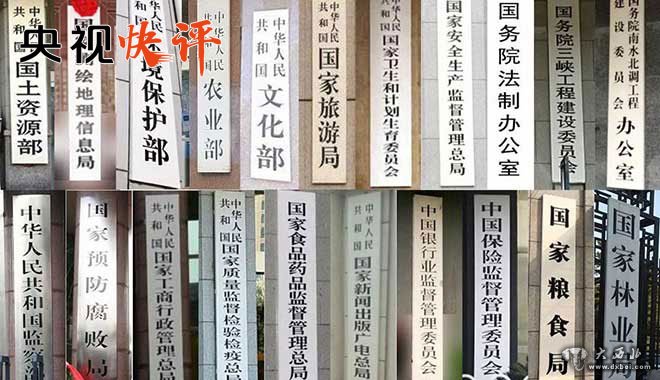 央视快评
中华人民
共和国
国土资源部
绘地理信息局
中华人民
共和国
环境保护部
中华人民
共和国
农业部
中华人民
共和国
文化部
中华人民
共和国
国家旅游局
中华人民
共和国
国家卫生和计划生育委员会
国家安全生产监督管理总局
国务院法制办公室
国务院三峡工程建设委员会
国务院南水北调工程
建设委员会
办公室
中华人民共和国监察部
国家预防腐败局
中华人民
共和国
国家工商行政管理总局
中华人民
共和国
国家质量监督检验检疫总局
国家食品药品监督管理总局
中华人民
共和国
国家新闻出版广电总局
中国银行业监督管理委员会
中国保险监督管理委员会
国家粮食局
国家林业
大西北
www.dxbei.com